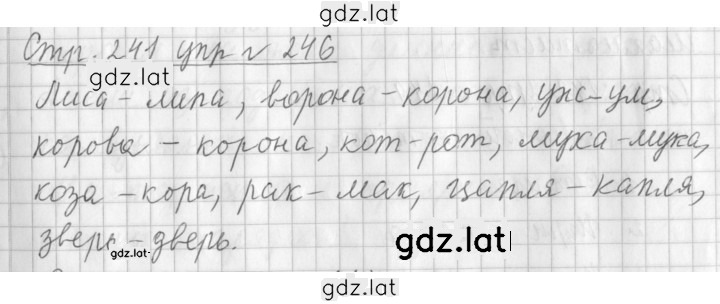 gdz.lat
Стр. 241 упр № 246
gdz.lat
Лиса – липа, ворона – корона, уж – ум,
корова – корона, кот – рот, муха – мука,
коза – кора, рак – мак, цапля – капля,
зверь – дверь.
gdz.lat
gdz.lat
gdz.lat